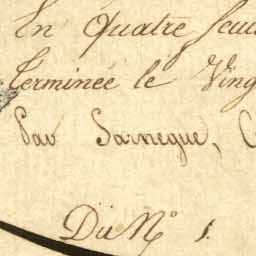 En Quatre feui
Terminée le Ving
Par Sarnegue, C
Du N° 1.